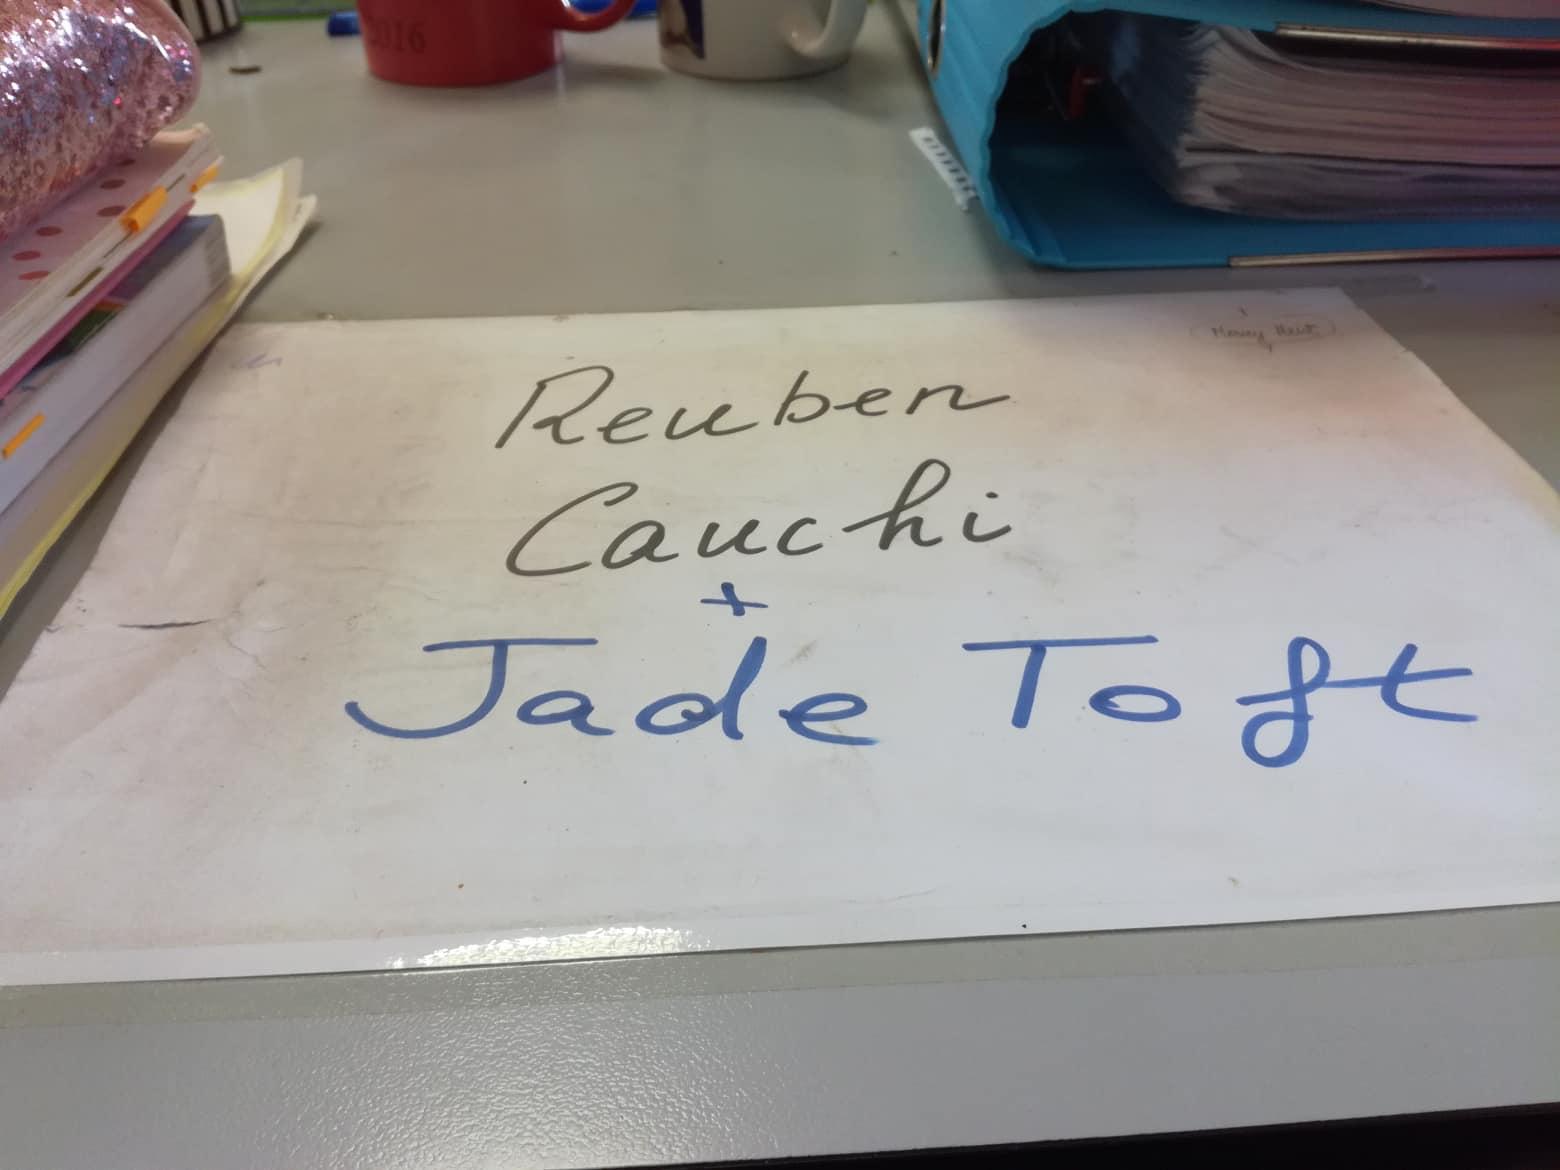 2016
Money Heist
Reuben
Cauchi
+
Jade Toft